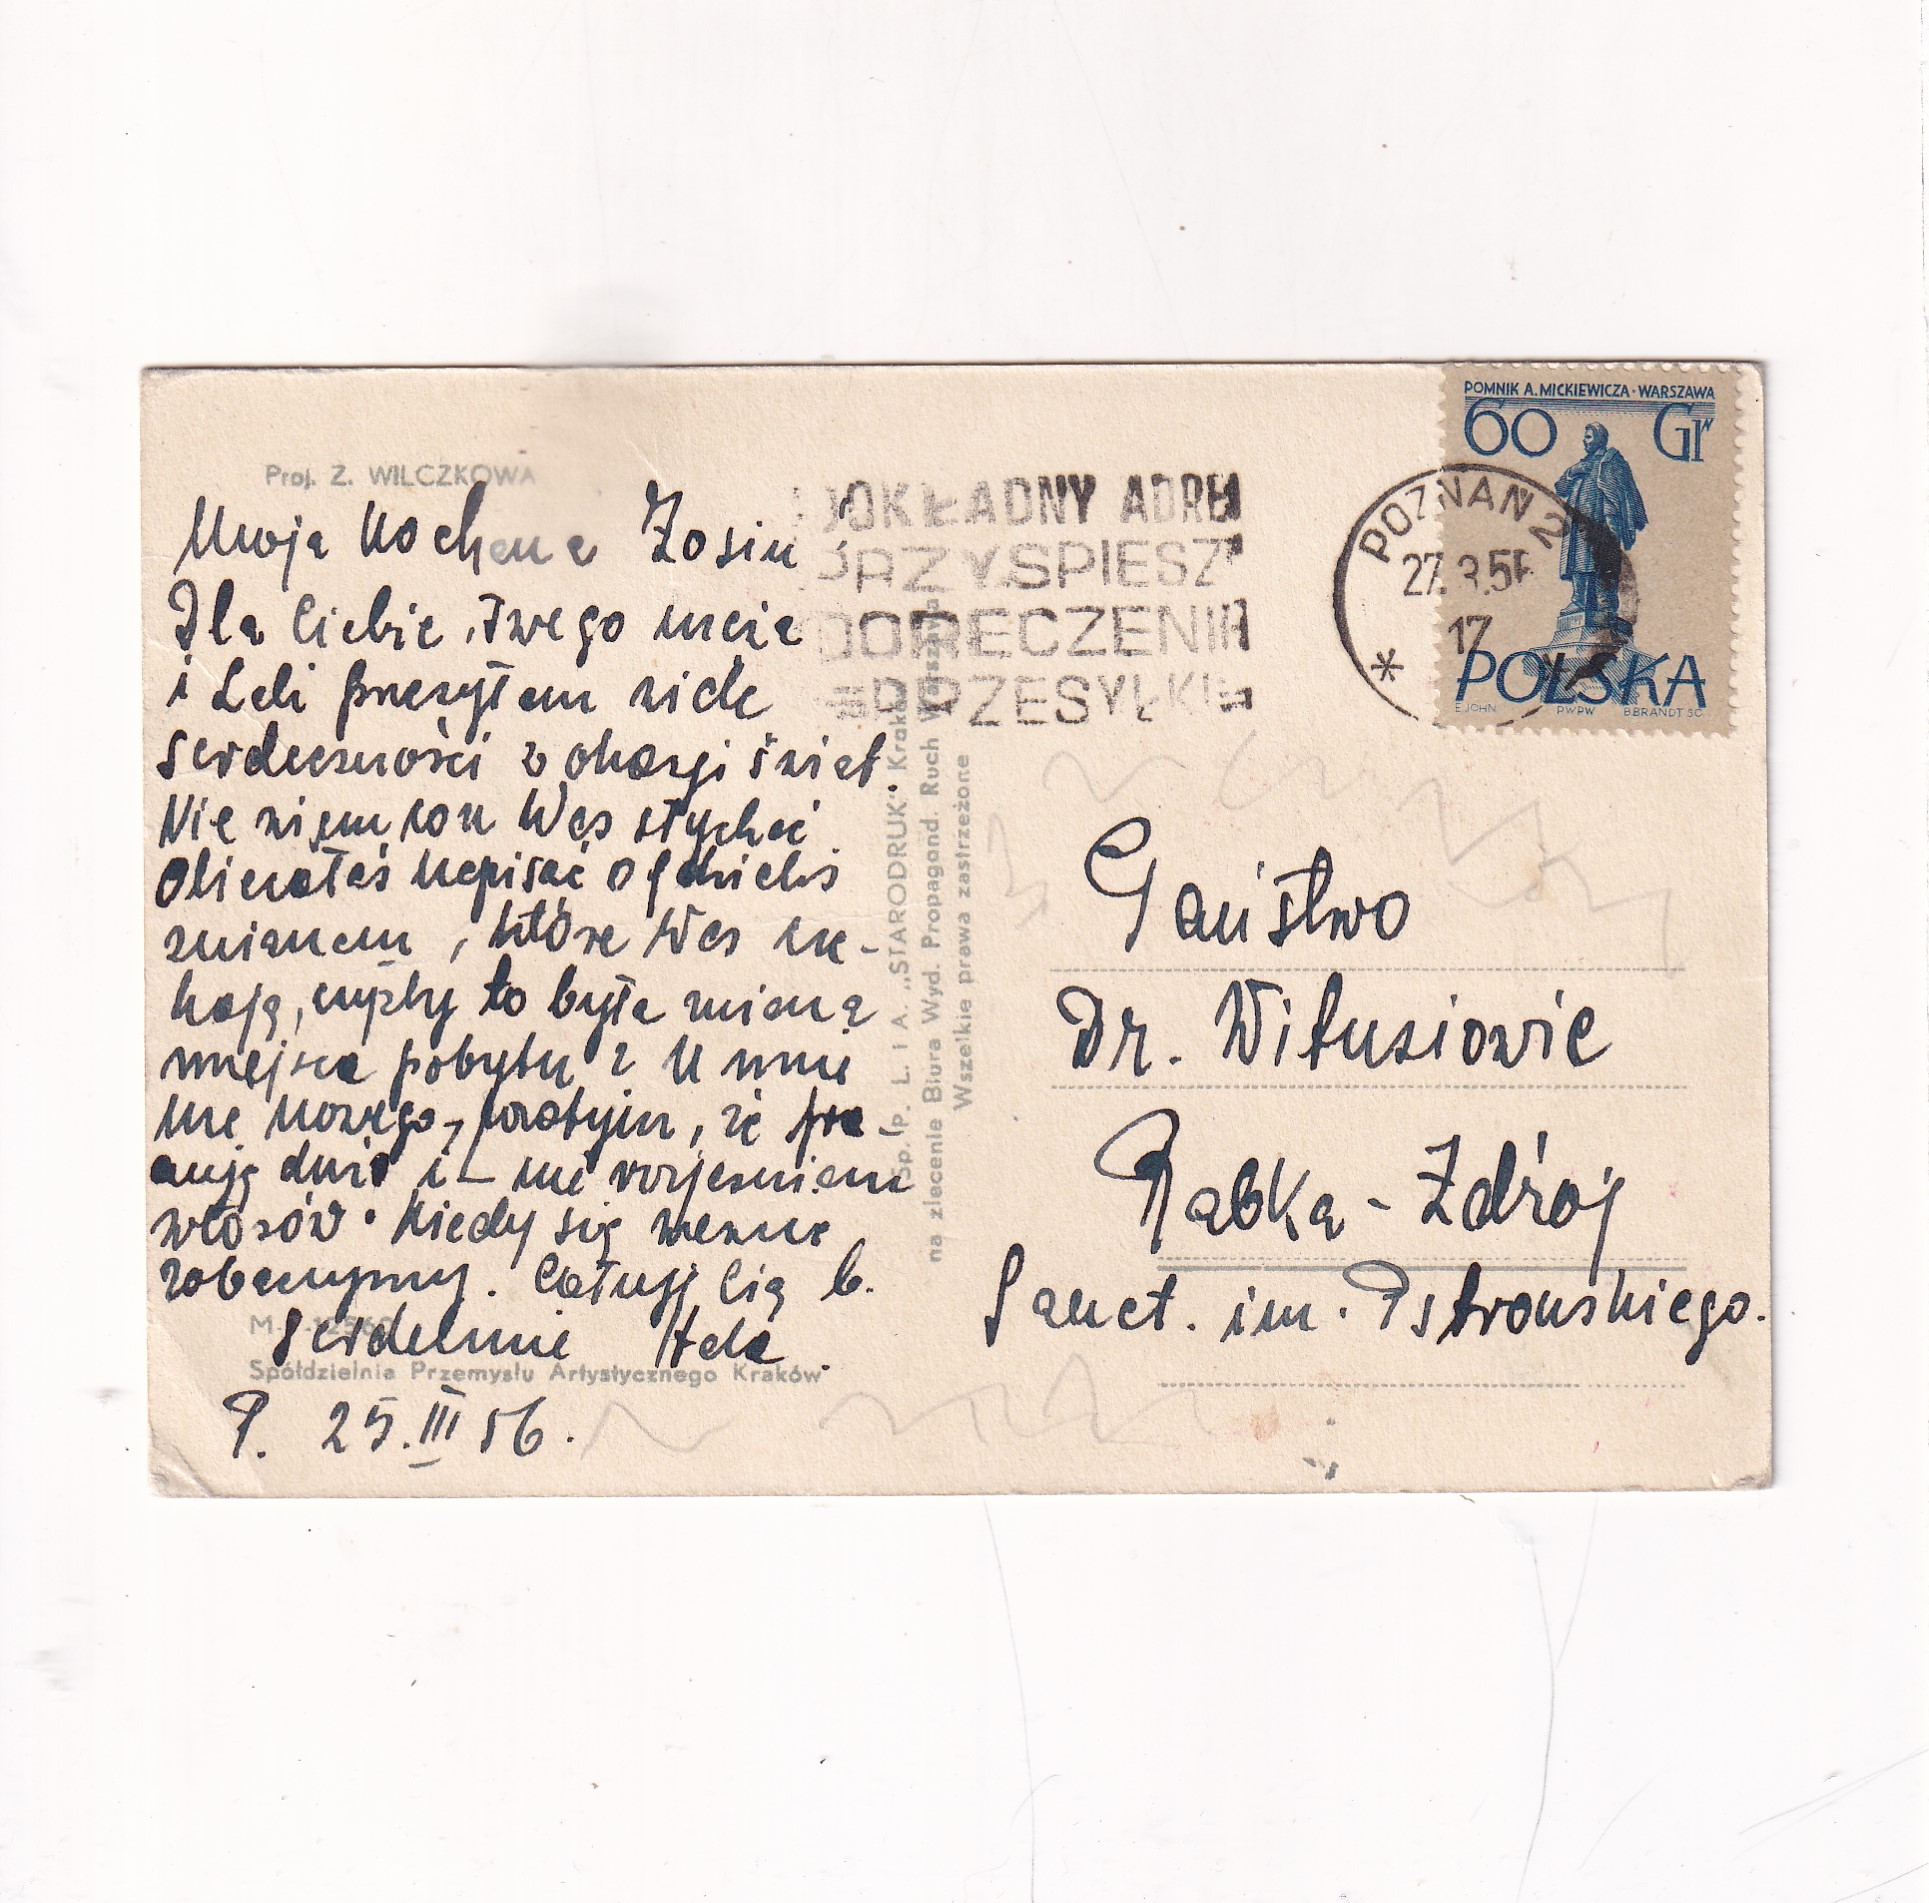 Proj. Z. WILCZKOWA
Moja Kochana Zosiu
Dla Ciebie, Twego męża
i Leli przesyłam wiele
serdeczności z okazji świąt.
Nie wiem co u Was słychać
Obiecałaś napisać o
zmianach, które Was cze-
kają, czyżby to była zmiana
miejsca pobytu? U mnie
nic nowego, poza tym, że pra-
cuję dużo i - nie
włosów. Kiedy się wreszcie
zobaczymy. Całuję Cię b.
serdecznie Hela.
P. 25. III 56.
M.
Spółdzielnia Przemysłu Artystycznego Kraków
Sp. P. L. i A. „STARODRUK" Kraków
na zlecenie Biura Wyd. Propagand. Ruch Warszawa
Wszelkie prawa zastrzeżone
DOKŁADNY ADRE
PRZYSPIESZ
DORĘCZENIE
PRZESYŁKI
POZNAŃ 2
27.3.56
17
POMNIK A. MICKIEWICZA · WARSZAWA
60 Gr
POLSKA
E.JOHN PWPW B.BRANDT SC.
Państwo
Dr. Witusiowie
Rabka-Zdrój
Sanat. im. Pstrowskiego.